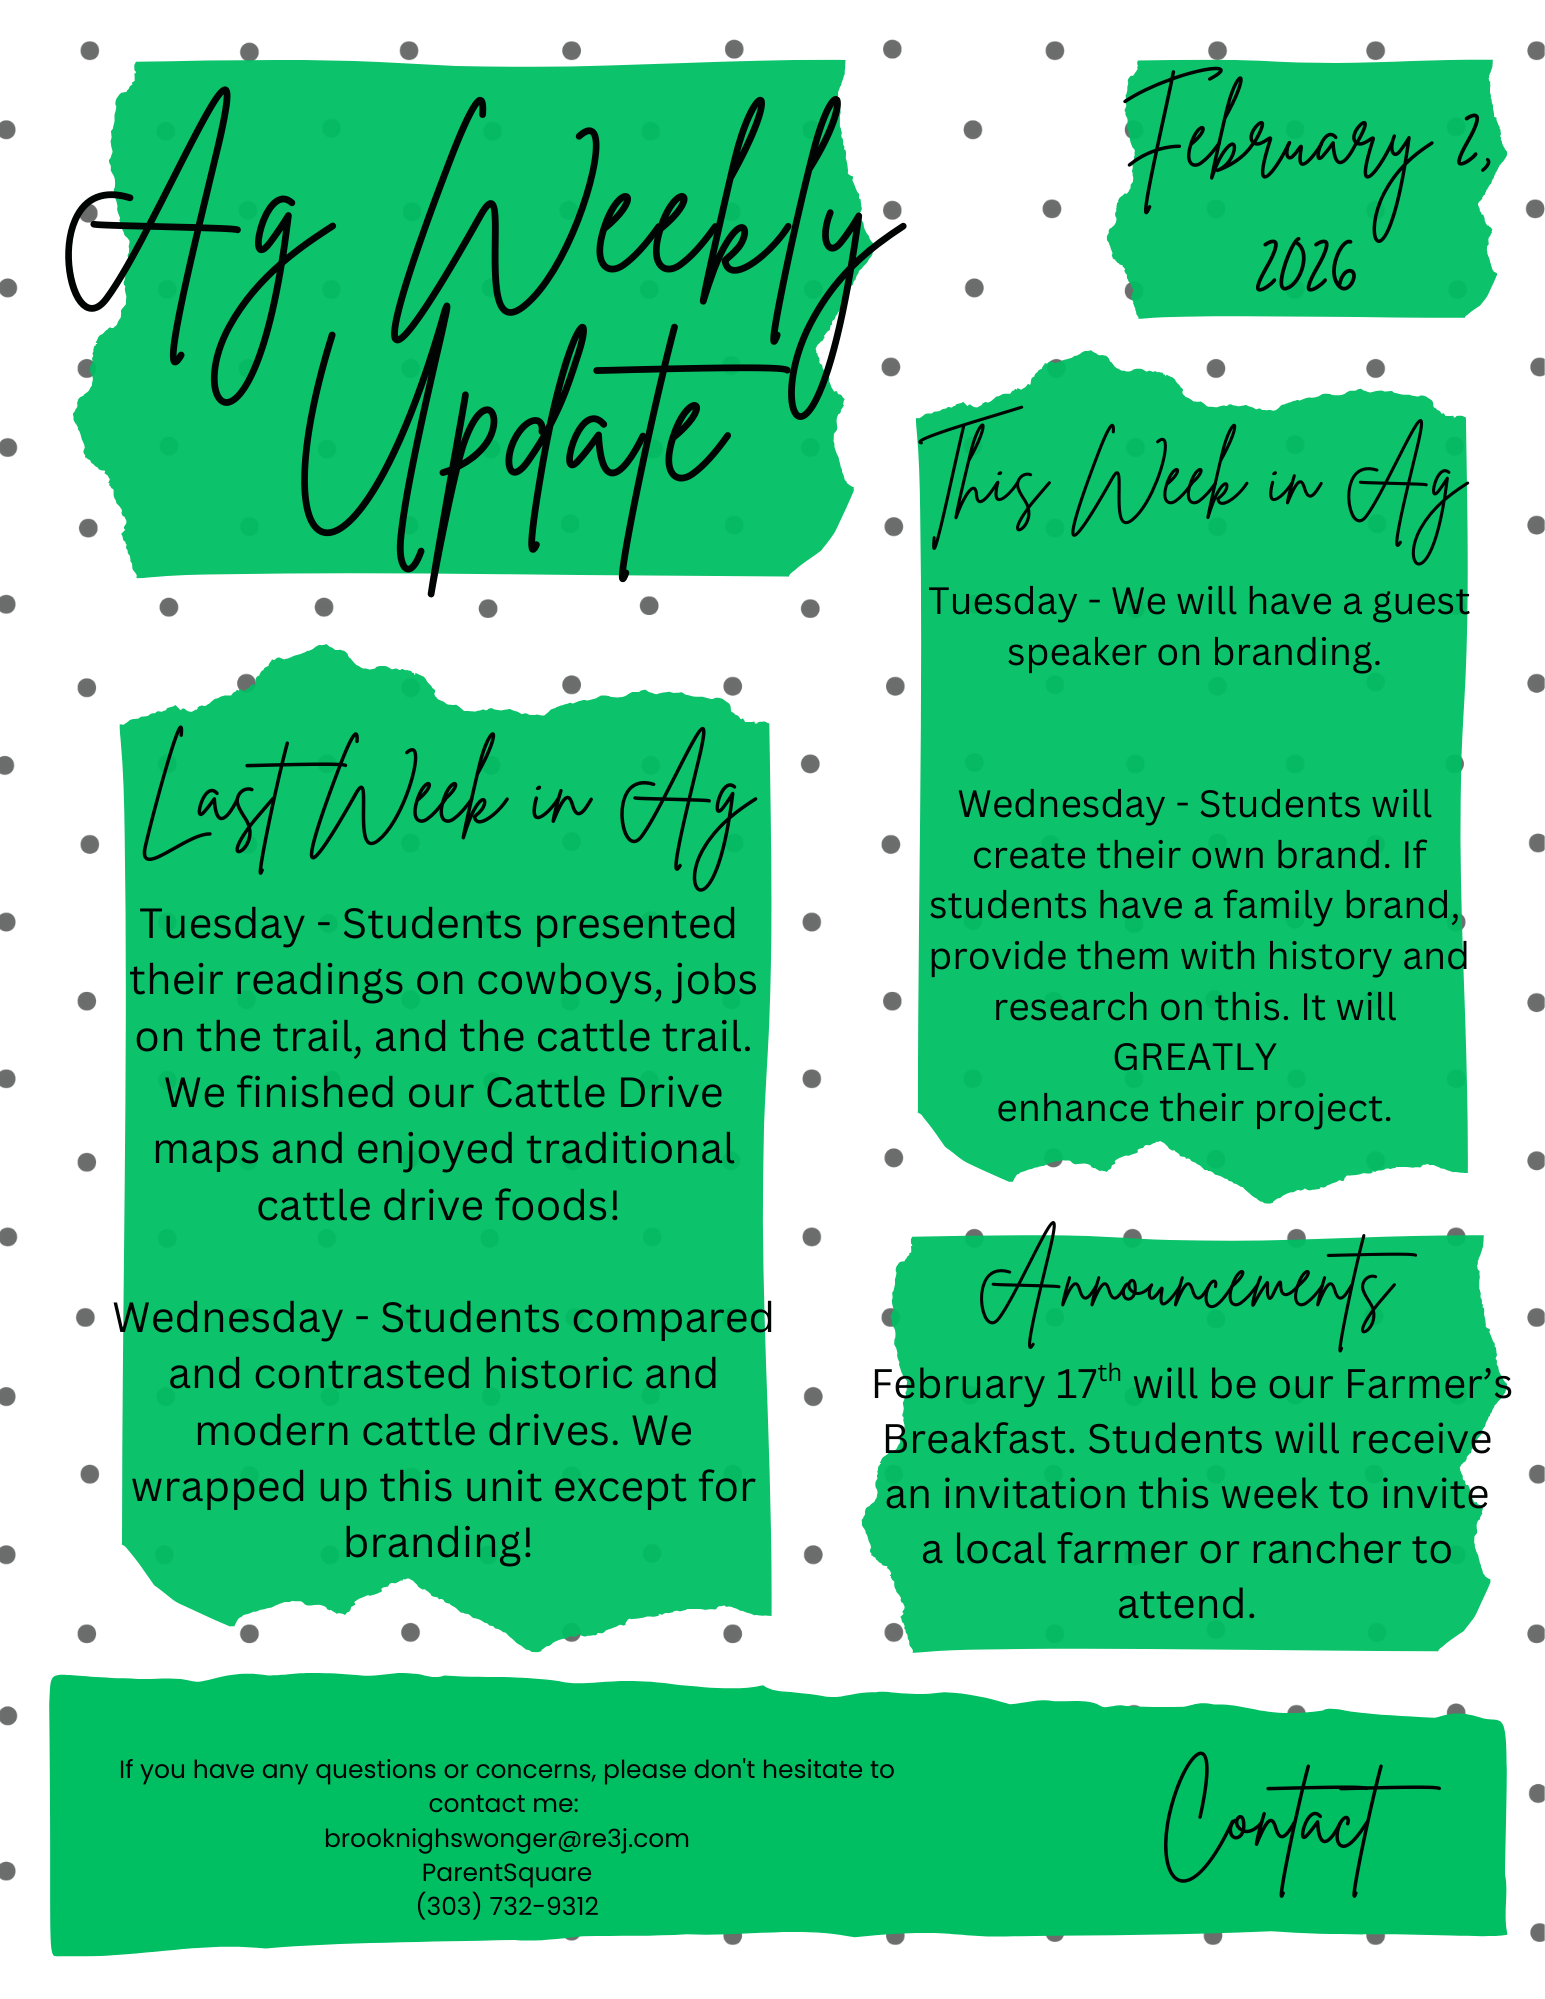 Ag Weekly
Update
February 2,
2026
Last Week in Ag
Tuesday - Students presented
their readings on cowboys, jobs
on the trail, and the cattle trail.
We finished our Cattle Drive
maps and enjoyed traditional
cattle drive foods!
Wednesday - Students compared
and contrasted historic and
modern cattle drives. We
wrapped up this unit except for
branding!
This Week in Ag
Tuesday - We will have a guest
speaker on branding.
Wednesday - Students will
create their own brand. If
students have a family brand,
provide them with history and
research on this. It will
GREATLY
enhance their project.
Announcements
February 17th will be our Farmer’s
Breakfast. Students will receive
an invitation this week to invite
a local farmer or rancher to
attend.
If you have any questions or concerns, please don't hesitate to
contact me:
brooknighswonger@re3j.com
ParentSquare
(303) 732-9312
Contact